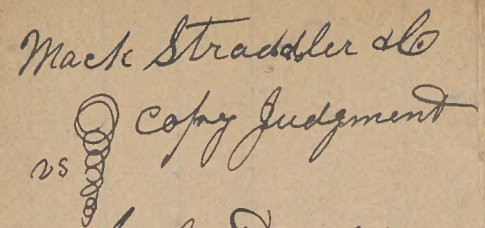 Mack Straddler & Co
Copy Judgment
vs